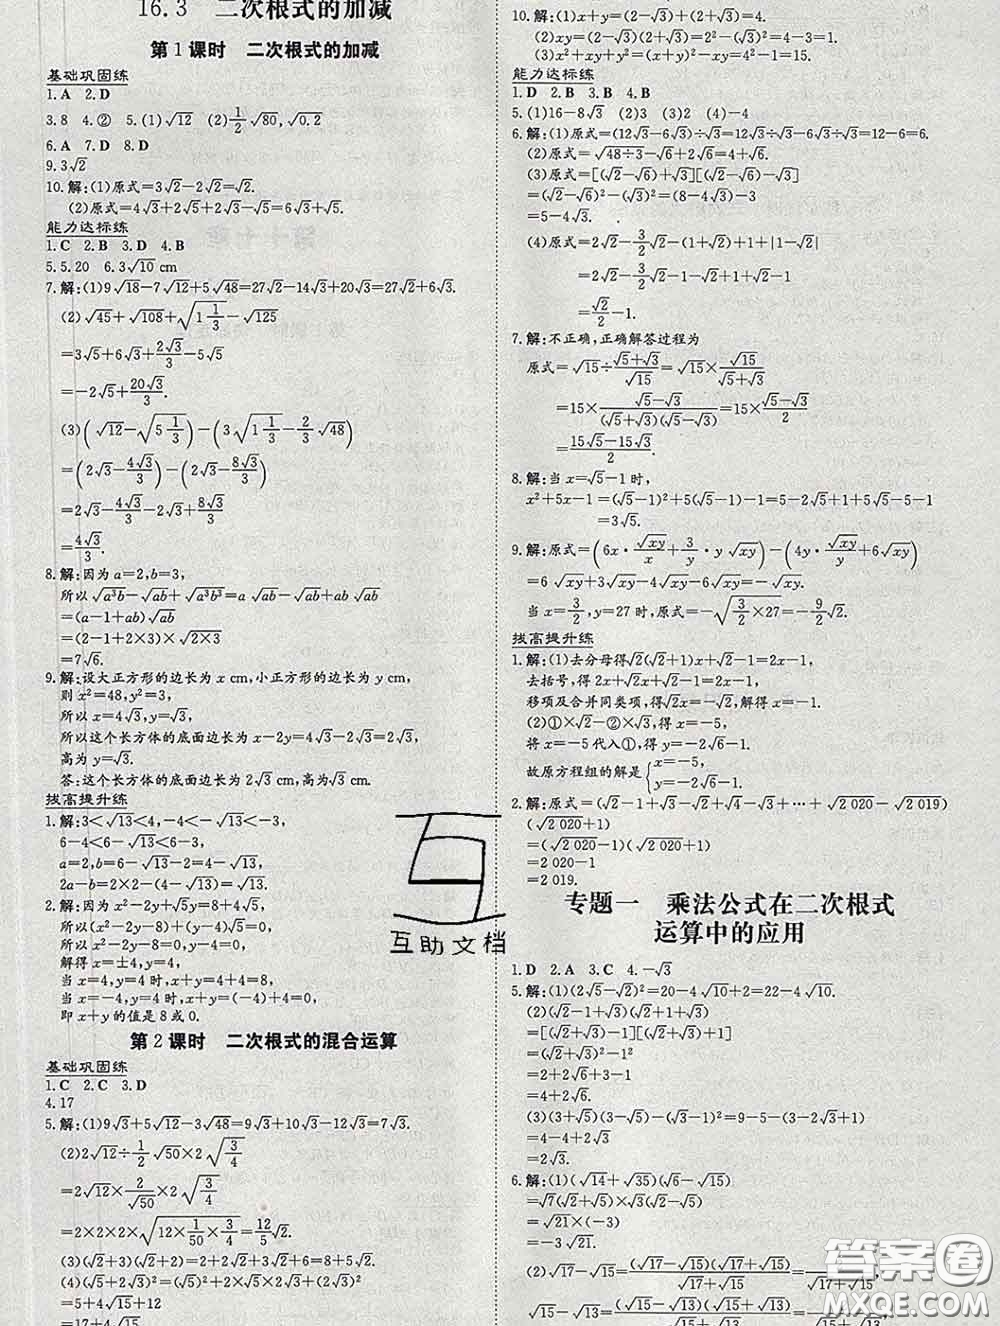 16.3　二次根式的加减
第1课时　二次根式的加减
基础巩固练
1.A　2.D
3.8　4.②　5.(1)√12　(2)1/2√80,√0.2
6.A　7.D　8.D
9.3√2
10.解:(1)原式=3√2-2√2=√2.
(2)原式=4√3+2√5+2√3-√5=6√3+√5.
能力达标练
1.C　2.B　3.D　4.B
5.5.20　6.3√10 cm
7.解:(1)9√18-7√12+5√48=27√2-14√3+20√3=27√2+6√3.
(2)√45+√108+√(1 1/3)-√125
=3√5+6√3+2√3/3-5√5
=-2√5+20√3/3.
(3)(√12-√(5 1/3))-(3√(1 1/3)-2/3√48)
=(2√3-4√3/3)-(2√3-8√3/3)
=2√3-4√3/3-2√3+8√3/3
=4√3/3.
8.解:因为a=2,b=3,
所以√(a³b)-√ab+√(a³b³)=a√ab-√ab+ab√ab
=(a-1+ab)√ab
=(2-1+2×3)×√(2×3)
=7√6.
9.解:设大正方形的边长为x cm,小正方形的边长为y cm,
则x²=48,y²=3,
所以x=4√3,y=√3,
所以这个长方体的底面边长为x-2y=4√3-2√3=2√3,
高为y=√3.
答:这个长方体的底面边长为2√3 cm,高为√3 cm.
拔高提升练
1.解:3<√13<4,-4<-√13<-3,
6-4<6-√13<6-3,
a=2,b=6-√13-2=4-√13,
2a-b=2×2-(4-√13)=√13.
2.解:因为x²-2y+√5y=8+4√5,
所以(x²-2y-8)+√5(y-4)=0,
所以x²-2y-8=0,y-4=0,
解得x=±4,y=4,
当x=4,y=4时,x+y=4+4=8,
当x=-4,y=4时,x+y=-4+4=0,
即x+y的值是8或0.
第2课时　二次根式的混合运算
基础巩固练
1.C　2.C　3.D
4.17
5.解:(1)9√3+5√12-3√48=9√3+10√3-12√3=7√3.
(2)2√12÷1/2√50×√(3/4)
=2√12×2/√50×2√(3/4)
=2×2×2×√(12×1/50×3/4)=12/5√2.
(3)(2√3+√6)(2√3-√6)=12-6=6.
=5+4√15+12
=17+4√15.
10.解:(1)x+y=(√2-1)+(√2+1)=2√2.
(2)xy=(√2-1)(√2+1)=2-1=1.
能力达标练
1.D　2.B　3.B　4.B
5.(1)16-8√3　(2)3　(3)2　(4)-4
6.解:(1)原式=(12√3-6√3)÷√3=12√3÷√3-6√3÷√3=12-6=6.
(2)原式=√(48÷3)-√6+2√6=4+√6.
(3)原式=[(√2-√6)+√3][(√2-√6)-√3]
=(√2-√6)²-(√3)²=(8-4√3)-3
=5-4√3.
(4)原式=2√2-3√2/2-(√2+1)+|1-√2|
=2√2-3√2/2-√2-1+√2-1
=√2/2-1.
7.解:不正确,正确解答过程为
原式=√15÷(√5+√3)/√15=√15×√15/(√5+√3)
=15×(√5-√3)/((√5+√3)(√5-√3))=15×(√5-√3)/2
=(15√5-15√3)/2.
8.解:当x=√5-1时,
x²+5x-1=(√5-1)²+5(√5-1)-1=5-2√5+1+5√5-5-1
=3√5.
9.解:原式=(6x·√xy/x+3/y·y√xy)-(4y·√xy/y+6√xy)
=6√xy+3√xy-4√xy-6√xy=-√xy.
当x=3/2,y=27时,原式=-√(3/2×27)=-9/2√2.
拔高提升练
1.解:(1)去分母得√2(√2+1)x+√2-1=2x-1,
去括号,得2x+√2x+√2-1=2x-1,
移项及合并同类项,得√2x=-√2,解得x=-1.
(2)①×√2-②×√3,得x=-5.
将x=-5代入①,得y=-2√6-1.
故原方程组的解是{x=-5, y=-2√6-1.
2.解:原式=(√2-1+√3-√2+√4-√3+…+√2020-√2019)
(√2020+1)
=(√2020-1)(√2020+1)
=2020-1
=2019.
专题一　乘法公式在二次根式
运算中的应用
1.D　2.A　3.C　4.-√3
5.解:(1)(2√5-√2)²=20-4√10+2=22-4√10.
(2)(√2+√3+1)(√2-1+√3)
=[(√2+√3)+1][(√2+√3)-1]
=(√2+√3)²-1²
=2+2√6+3-1
=4+2√6.
=4-4+2√3
=2√3.
6.解:(1)(√14+√35)(√6-√15)
=√7(√2+√5)×√3(√2-√5)
=√21×(-3)
=-3√21.
互助文档
答案圈
MXQE.COM